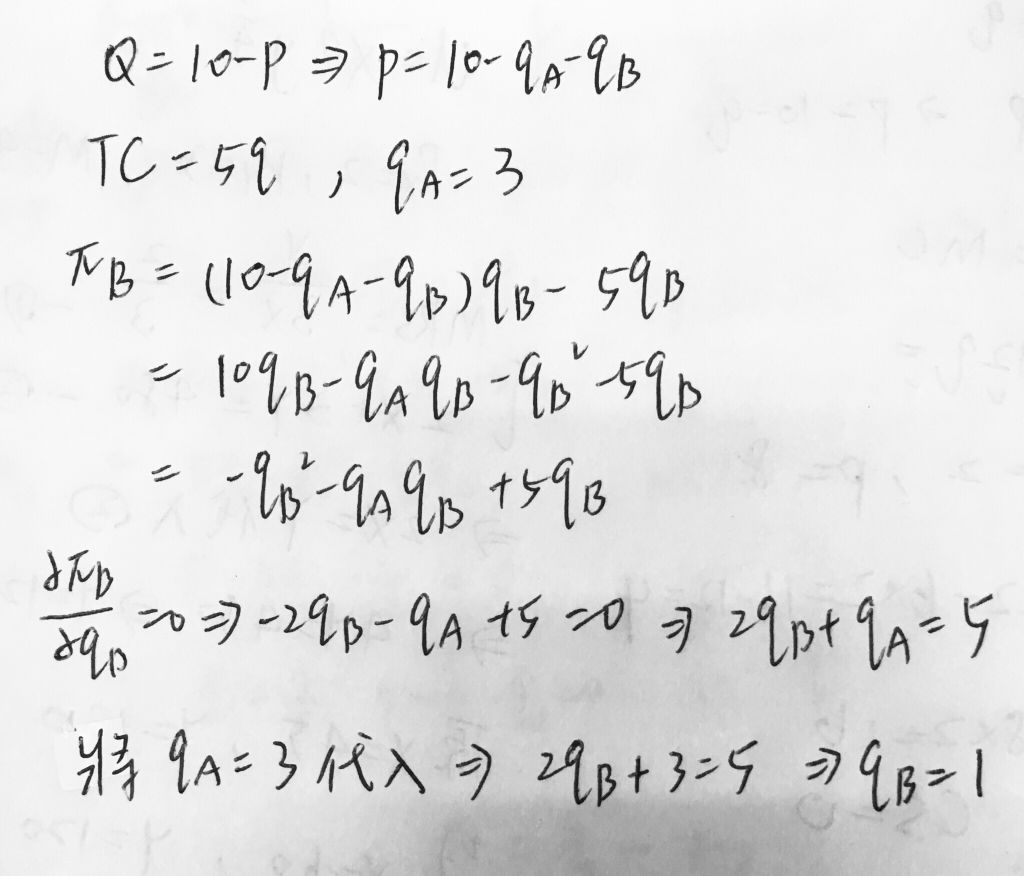 Q=10-P ⇒ P=10-qA-qB
TC=5q , qA=3
πB = (10-qA-qB)qB-5qB
= 10qB-qAqB-qB²-5qB
= -qB²-qAqB+5qB
∂πB/∂qB=0 ⇒ -2qB-qA+5=0 ⇒ 2qB+qA=5
將 qA=3 代入 ⇒ 2qB+3=5 ⇒ qB=1